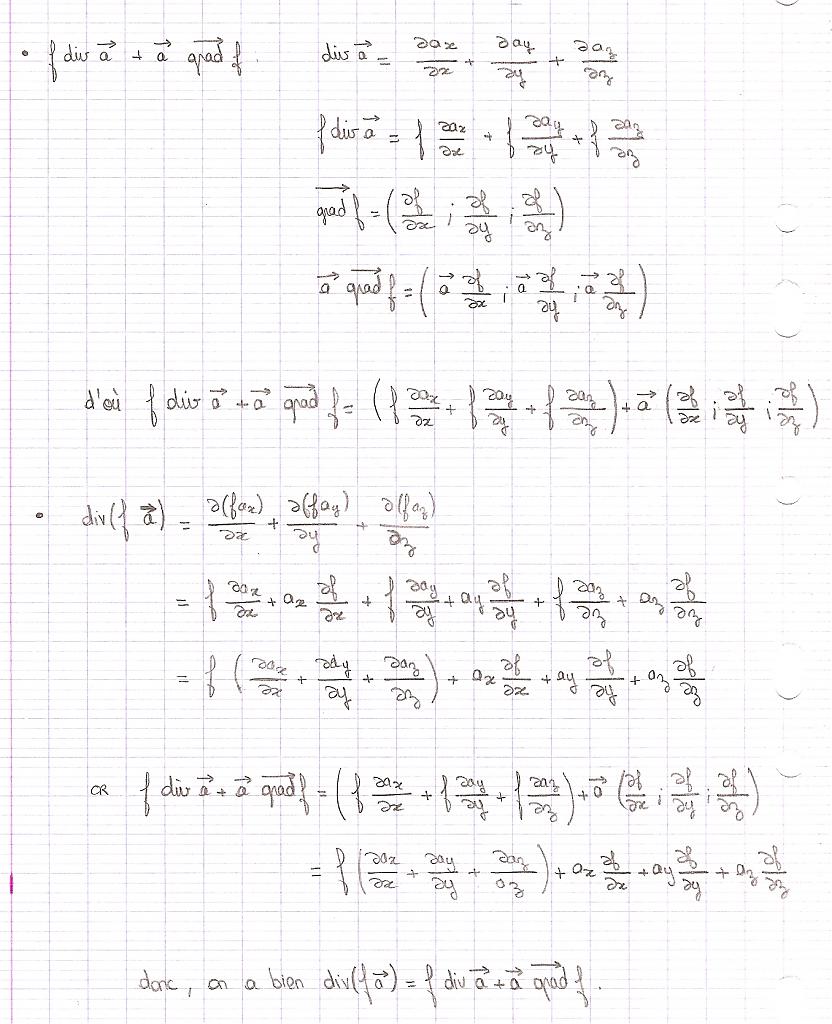 • f div a⃗ + a⃗ grad⃗ f. div a⃗ = ∂ax/∂x + ∂ay/∂y + ∂az/∂z
f div a⃗ = f ∂ax/∂x + f ∂ay/∂y + f ∂az/∂z
grad⃗ f = (∂f/∂x ; ∂f/∂y ; ∂f/∂z)
a⃗ grad⃗ f = (a⃗ ∂f/∂x ; a⃗ ∂f/∂y ; a⃗ ∂f/∂z)
d'où f div a⃗ + a⃗ grad⃗ f = (f ∂ax/∂x + f ∂ay/∂y + f ∂az/∂z) + a⃗ (∂f/∂x ; ∂f/∂y ; ∂f/∂z)
• div(f a⃗) = ∂(fax)/∂x + ∂(fay)/∂y + ∂(faz)/∂z
= f ∂ax/∂x + ax ∂f/∂x + f ∂ay/∂y + ay ∂f/∂y + f ∂az/∂z + az ∂f/∂z
= f (∂ax/∂x + ∂ay/∂y + ∂az/∂z) + ax ∂f/∂x + ay ∂f/∂y + az ∂f/∂z
OR f div a⃗ + a⃗ grad⃗ f = (f ∂ax/∂x + f ∂ay/∂y + f ∂az/∂z) + a⃗ (∂f/∂x ; ∂f/∂y ; ∂f/∂z)
= f (∂ax/∂x + ∂ay/∂y + ∂az/∂z) + ax ∂f/∂x + ay ∂f/∂y + az ∂f/∂z
donc, on a bien div(f a⃗) = f div a⃗ + a⃗ grad⃗ f.